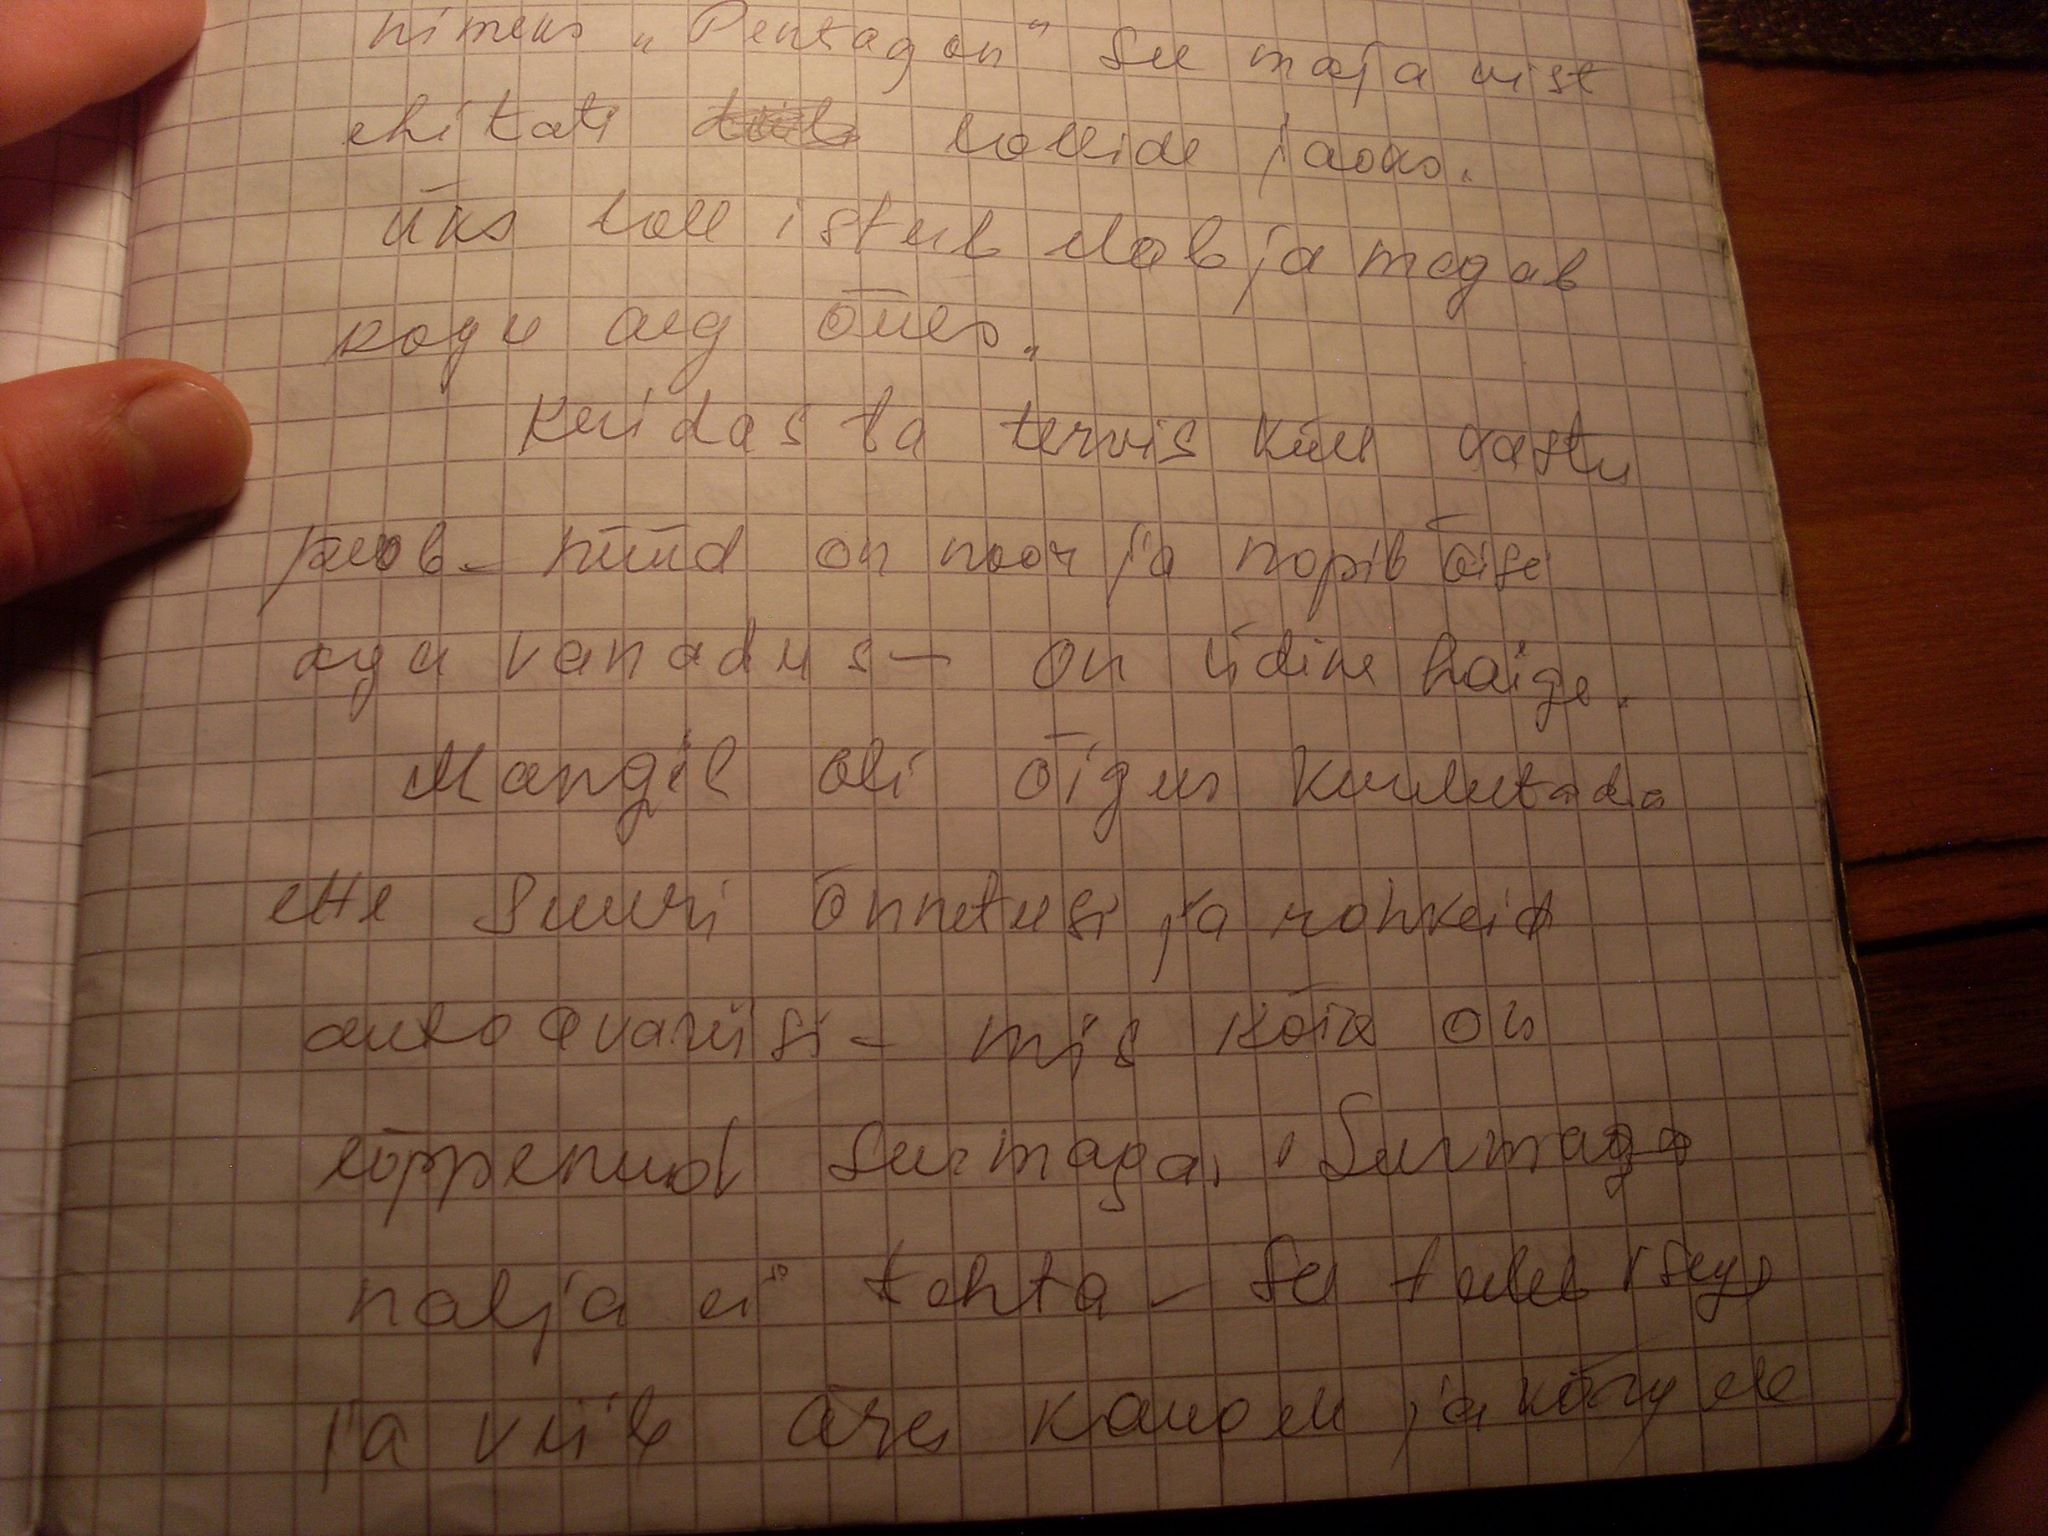 nimeks „Pentagon" See maja vist
ehitati lollide jaoks.
üks loll istub elab ja magab
kogu aeg õues.
Kuidas ta tervis küll vastu
peab - nüüd on noor ja kopib öise
aga vanadus - on üdine haige.
Mangil oli õigus kuulutada
ette suuri õnnetusi ja rohkeid
autoavariisi - mis kõik on
lõppenud surmaga. Surmaga
nalja ei tehta - see tuleb
ja viib ära kaugele ja kõrgele